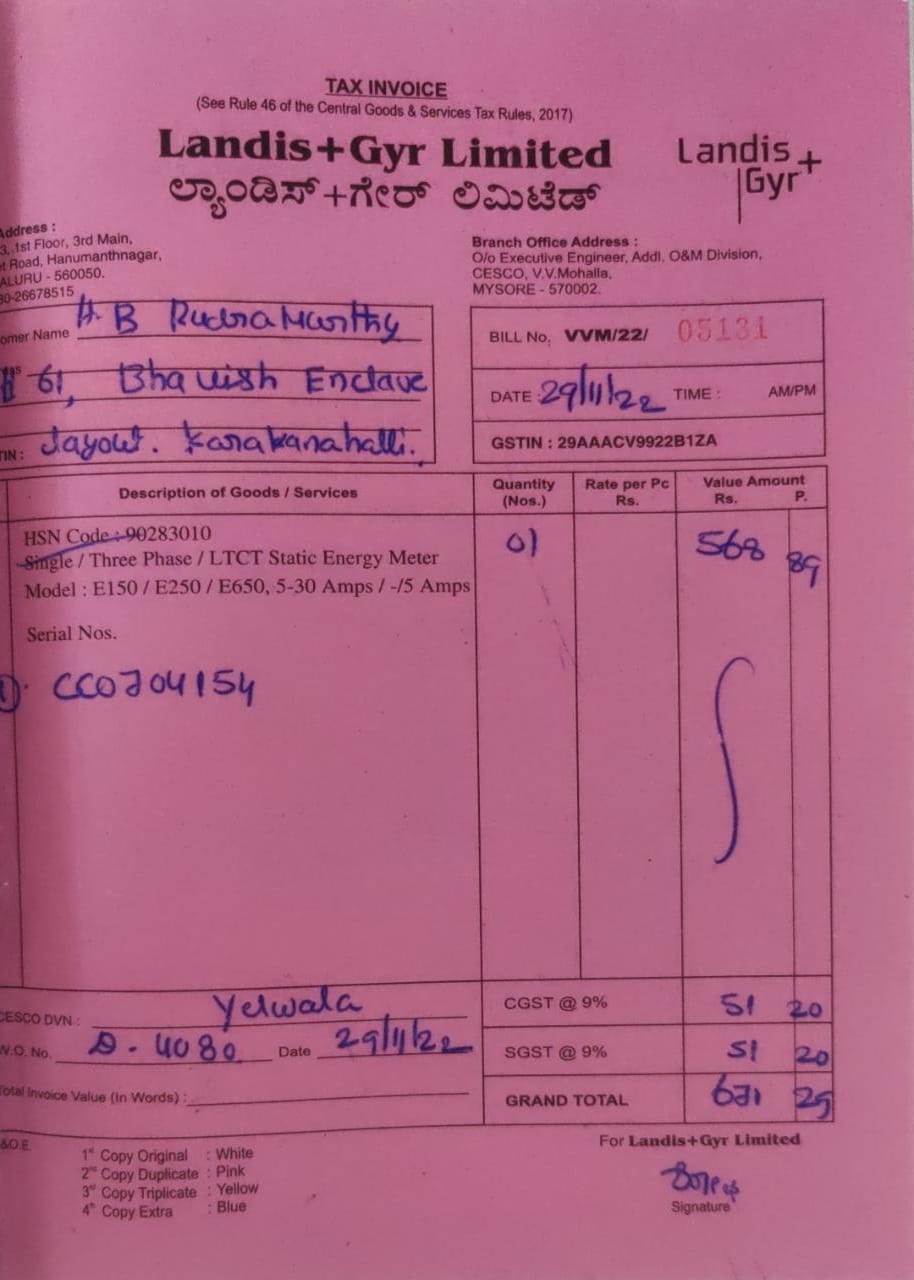 TAX INVOICE
(See Rule 46 of the Central Goods & Services Tax Rules, 2017)
Landis+Gyr Limited
ಲ್ಯಾಂಡಿಸ್+ಗೇರ್ ಲಿಮಿಟೆಡ್
Landis+
Gyr+
Address :
3, 1st Floor, 3rd Main,
Road, Hanumanthnagar,
ALURU - 560050.
80-26678515
Branch Office Address :
O/o Executive Engineer, Addl. O&M Division,
CESCO, V.V.Mohalla,
MYSORE - 570002.
omer Name H. B Rudra Murthy
61, Bhavish Enclave
TIN : Layout. Karakanahalli.
BILL No. VVM/22/ 05131
DATE : 29/11/22 TIME : AM/PM
GSTIN : 29AAACV9922B1ZA
Description of Goods / Services Quantity (Nos.) Rate per Pc Rs. Value Amount Rs. P.
HSN Code : 90283010 01 568 89
Single / Three Phase / LTCT Static Energy Meter
Model : E150 / E250 / E650, 5-30 Amps / -/5 Amps
Serial Nos.
1). CC0704154
CESCO DVN : Yelwala
W.O. No. D-4080 Date 29/11/22
Total Invoice Value (In Words) :
CGST @ 9% 51 20
SGST @ 9% 51 20
GRAND TOTAL 671 29
&O.E.
1st Copy Original : White
2nd Copy Duplicate : Pink
3rd Copy Triplicate : Yellow
4th Copy Extra : Blue
For Landis+Gyr Limited
Signature